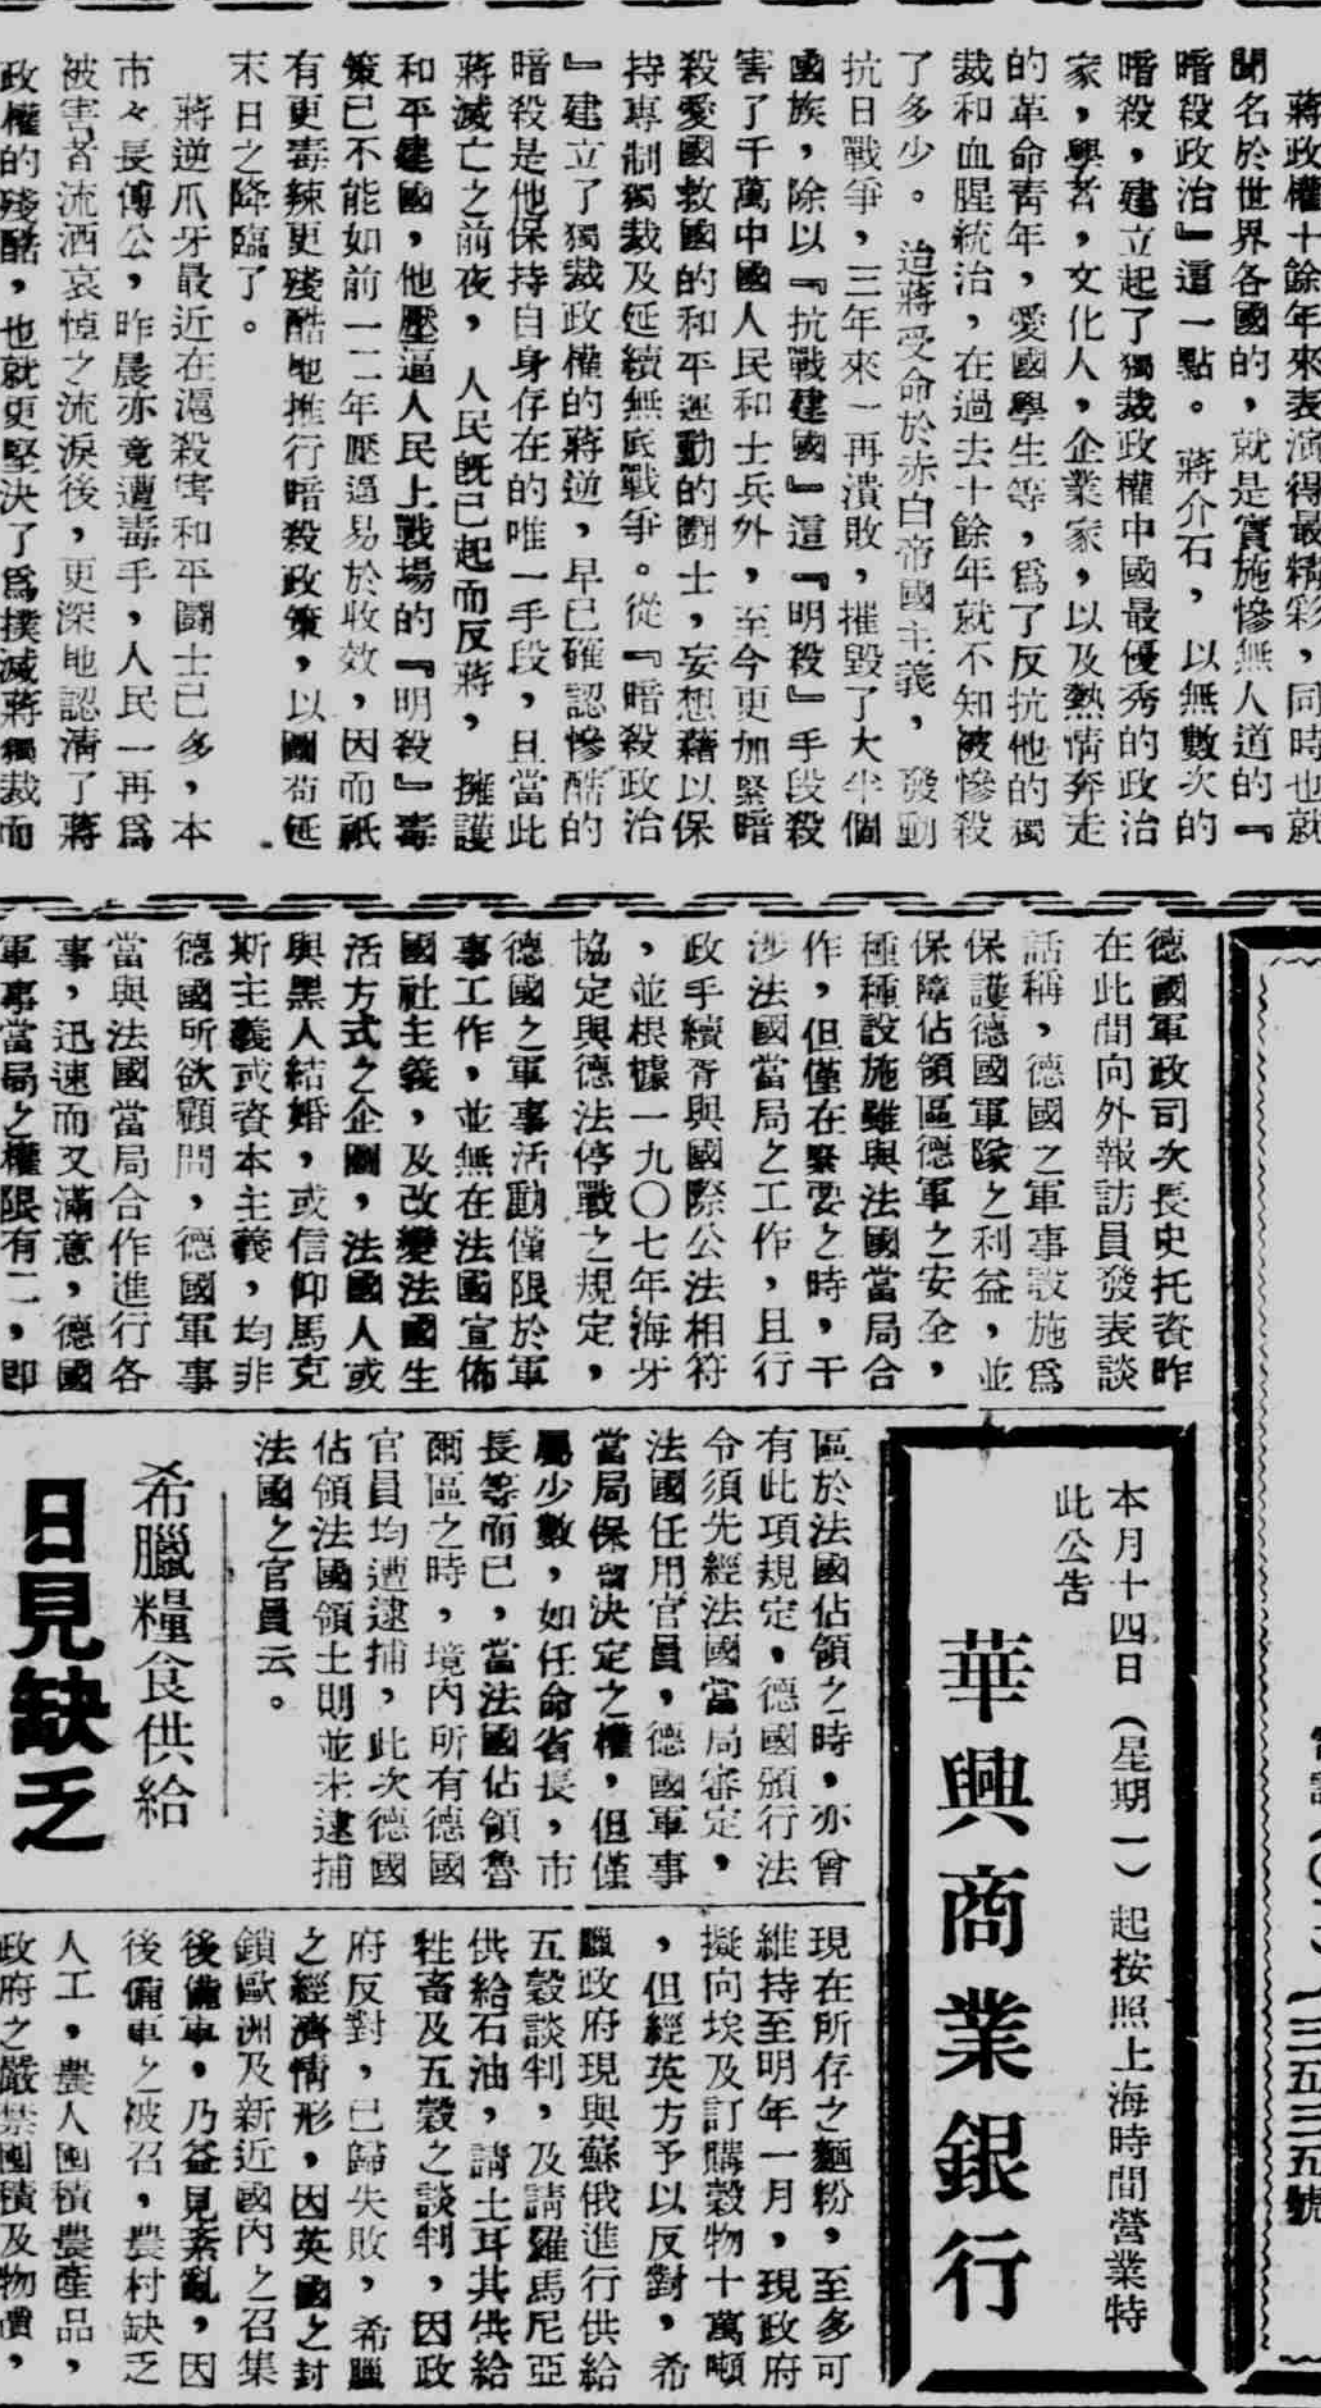 蔣政權十餘年來表演得最精彩，同時也就
聞名於世界各國的，就是實施慘無人道的『
暗殺政治』這一點。蔣介石，以無數次的
暗殺，建立起了獨裁政權中國最優秀的政治
家，學者，文化人，企業家，以及熱情奔走
的革命靑年，愛國學生等，爲了反抗他的獨
裁和血腥統治，在過去十餘年就不知被慘殺
了多少。迨蔣受命於赤白帝國主義，發動
抗日戰爭，三年來一再潰敗，摧毀了大半個
國族，除以『抗戰建國』這『明殺』手段殺
害了千萬中國人民和士兵外，至今更加緊暗
殺愛國救國的和平運動的鬪士，妄想藉以保
持專制獨裁及延續無底戰爭。從『暗殺政治
』建立了獨裁政權的蔣逆，早已確認慘酷的
暗殺是他保持自身存在的唯一手段，且當此
蔣滅亡之前夜，人民旣已起而反蔣，擁護
和平建國，他壓逼人民上戰場的『明殺』毒
策已不能如前一二年壓逼易於收效，因而祇
有更毒辣更殘酷地推行暗殺政策，以圖苟延
末日之降臨了。
蔣逆爪牙最近在滬殺害和平鬪士已多，本
市々長傅公，昨晨亦竟遭毒手，人民一再爲
被害者流洒哀悼之流淚後，更深地認清了蔣
政權的殘酷，也就更堅決了爲撲滅蔣獨裁而
德國軍政司次長史托資昨
在此間向外報訪員發表談
話稱，德國之軍事設施爲
保護德國軍隊之利益，並
保障佔領區德軍之安全，
種種設施雖與法國當局合
作，但僅在緊要之時，干
涉法國當局之工作，且行
政手續胥與國際公法相符
，並根據一九〇七年海牙
協定與德法停戰之規定，
德國之軍事活動僅限於軍
事工作，並無在法國宣佈
國社主義，及改變法國生
活方式之企圖，法國人或
與黑人結婚，或信仰馬克
斯主義或資本主義，均非
德國所欲顧問，德國軍事
當與法國當局合作進行各
事，迅速而又滿意，德國
軍事當局之權限有二，即
區於法國佔領之時，亦曾
有此項規定，德國頒行法
令須先經法國當局審定，
法國任用官員，德國軍事
當局保留決定之權，但僅
屬少數，如任命省長，市
長等而已，當法國佔領魯
爾區之時，境內所有德國
官員均遭逮捕，此次德國
佔領法國領土則並未逮捕
法國之官員云。
希臘糧食供給
日見缺乏
現在所存之麵粉，至多可
維持至明年一月，現政府
擬向埃及訂購穀物十萬噸
，但經英方予以反對，希
臘政府現與蘇俄進行供給
五穀談判，及請羅馬尼亞
供給石油，請土耳其供給
牲畜及五穀之談判，因政
府反對，已歸失敗，希臘
之經濟情形，因英國之封
鎖歐洲及新近國內之召集
後備軍，乃益見紊亂，因
後備軍之被召，農村缺乏
人工，農人囤積農產品，
政府之嚴禁囤積及物價，
本月十四日（星期一）起按照上海時間營業特
此公告
華興商業銀行
三五三五號